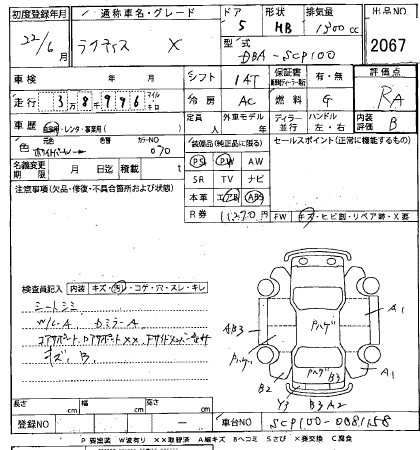 初度登録年月 通称車名・グレード ドア 形状 排気量 出品NO
22/6月 ラクティス X 5 HB 1300cc
型式 DBA-SCP100 2067
車検 年 月 シフト IAT 保証書 有・無 評価点
走行 3万8千996 マイル キロ 冷房 AC 燃料 G RA
車歴 自家用・レンタ・事業用( ) 定員 人 外車モデル 年 ディーラー 並行 ハンドル 左・右 内装評価 B
色 元色 色替 カラーNO 070 装備品(純正品に限る) セールスポイント(正常に機能するもの)
PS PW AW
名義変更期限 月 日迄 積載 t SR TV ナビ
注意事項(欠品・修復・不具合箇所および状態) 本革 エアB ABS
R券 11270円 FW キズ・ヒビ割・リペア跡・X要
検査員記入 内装 キズ・汚・コゲ・穴・スレ・キレ
シートシミ
W/C-A カミラーA
キズ、B
AB3 Pハゲ A1
Pハゲ
Pハゲ A1
B2 B3
Y3 B3A2
長さ cm 幅 cm 高さ cm
登録NO 車台NO SCP100-0081158
P 要塗装 W 波有り XX 取替済 A 線キズ B ヘコミ S さび X 要交換 C 腐食